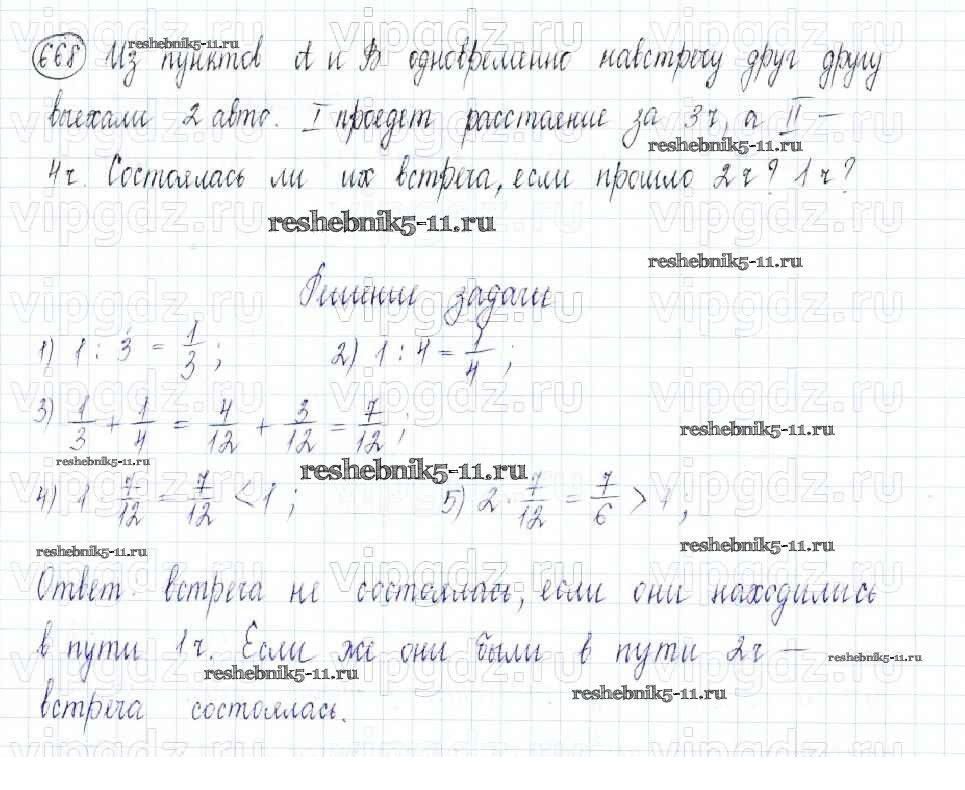 668 Из пунктов А и В одновременно навстречу друг другу
выехали 2 авто. I проедет расстояние за 3ч, а II –
4ч. Состоялась ли их встреча, если прошло 2ч? 1ч?
Решение задачи
1) 1 : 3 = 1/3 ; 2) 1 : 4 = 1/4 ;
3) 1/3 + 1/4 = 4/12 + 3/12 = 7/12 ;
4) 1 · 7/12 = 7/12 < 1 ; 5) 2 · 7/12 = 7/6 > 1 ;
Ответ: встреча не состоялась, если они находились
в пути 1ч. Если же они были в пути 2ч –
встреча состоялась.
reshebnik5-11.ru
reshebnik5-11.ru
reshebnik5-11.ru
reshebnik5-11.ru
reshebnik5-11.ru
reshebnik5-11.ru
reshebnik5-11.ru
reshebnik5-11.ru
reshebnik5-11.ru
reshebnik5-11.ru
reshebnik5-11.ru
reshebnik5-11.ru
vipgdz.ru